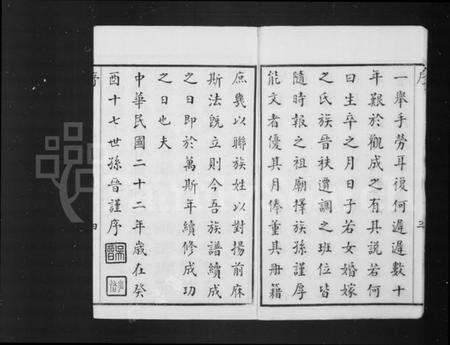 序
一舉手勞耳復何遲遲數十
年艱於觀成之有具說若何
曰生卒之月日子若女婚嫁
之氏族晉秩遷調之班位皆
隨時報之祖廟擇族孫謹厚
能文者優其月俸董其冊籍
庶幾以聯族姓以對揚前庥
斯法既立則今吾族譜續成
之日即於萬斯年續修成功
之日也夫
中華民國二十二年歲在癸
酉十七世孫晉謹序